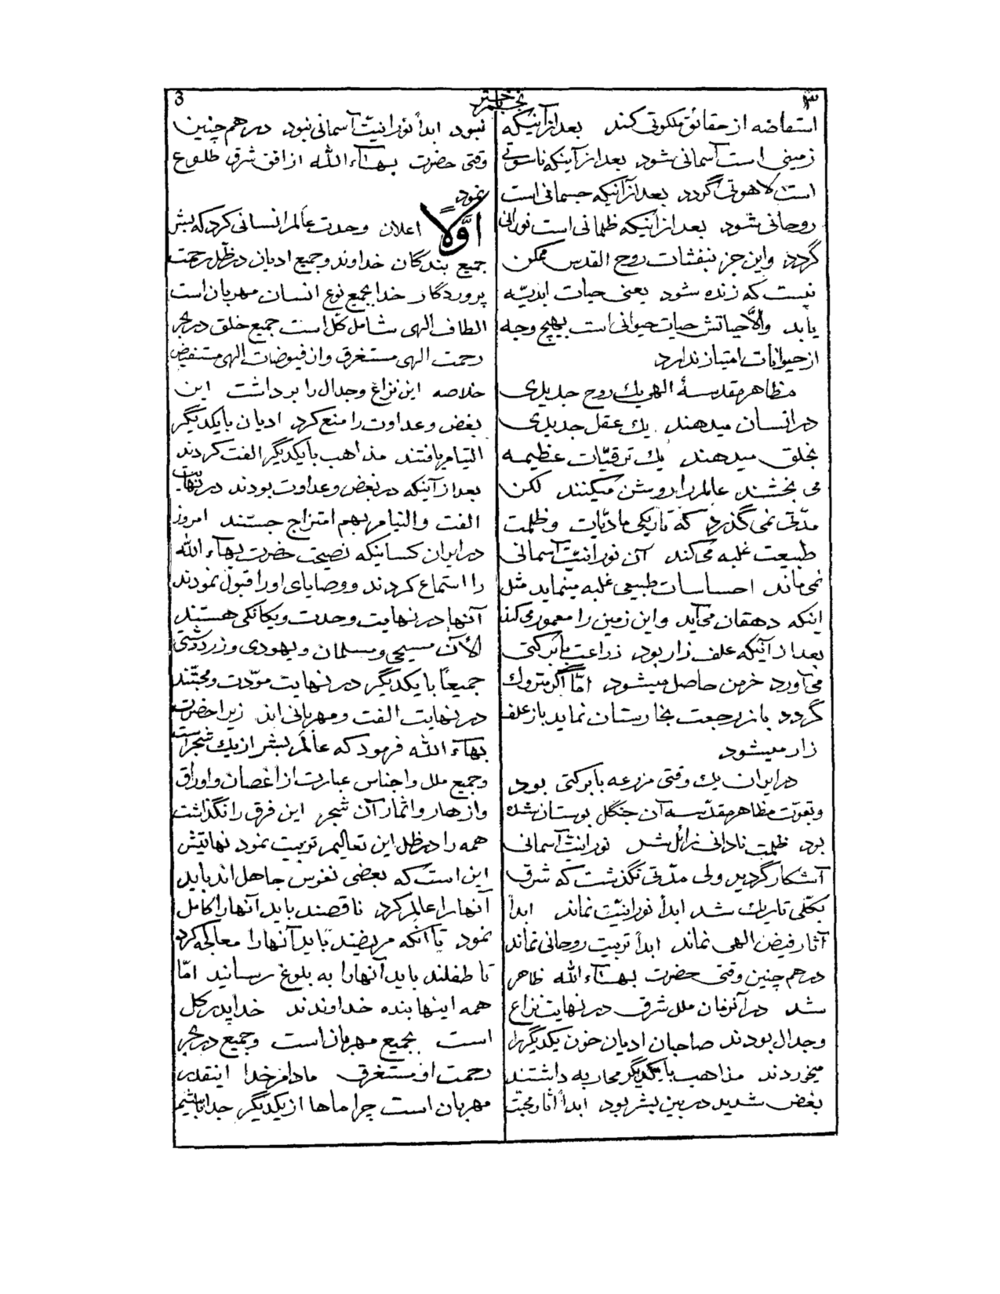 ۳
نجم باختر
3
استفاضه از حقائق ملکوتی کند بعد از آنیکه
زمینی است آسمانی شود بعد از آنیکه ناسوتی
است لاهوتی گردد بعد از آنیکه جسمانی است
روحانی شود بعد از آنیکه ظلمانی است نورانی
گردد واین جز بنفثات روح القدس ممکن
نیست که زنده شود یعنی حیات ابدیّه
یابد والّا حیاتش حیات حیوانی است بهیچ وجه
از حیوانات امتیاز ندارد
مظاهر مقدسهٔ الهی یك روح جدیدی
در انسان میدهند یك عقل جدیدی
بخلق میدهند یك ترقیّات عظیمه
می بخشند عالم را روشن میکنند لکن
مدّتی نمی گذرد که تاریکی مادیّات و ظلمت
طبیعت غلبه می کند آن نورانیّت آسمانی
نمی ماند احساسات طبیعی غلبه مینماید مثل
اینکه دهقان می آید واین زمین را معمور می کند
بعد از آنیکه علف زار بود زراعت با برکتی
می آورد خرمن حاصل میشود امّا اگر متروك
گردد باز رجعت بخارستان نماید باز علف
زار میشود
در ایران یك وقتی مزرعه با برکتی بود
وبقوّت مظاهر مقدّسه آن جنگل بوستان شده
بود ظلمت نادانی زائل شد نورانیّت آسمانی
آشکار گردید ولی مدّتی نگذشت که شرق
بکلّی تاریك شد ابداً نورانیّت نماند ابداً
آثار فیض الهی نماند ابداً تربیت روحانی نماند
در همچنین وقتی حضرت بهآءالله ظاهر
شد در آنزمان ملل شرق در نهایت نزاع
وجدال بودند صاحبان ادیان خون یکدیگر را
میخوردند مذاهب با یکدیگر محاربه داشتند
بغض شدید در بین بشر بود ابداً آثار محبّت
نبود ابداً نورانیّت آسمانی نبود در هم چنین
وقتی حضرت بهآءالله از افق شرق طلوع
نمود
اوّلاً اعلان وحدت عالم انسانی کرد که بشر
جمیع بندگان خداوند وجمیع ادیان در ظلّ رحمت
پروردگار خدا بجمیع نوع انسان مهربان است
الطاف الهی شامل کلّ است جمیع خلق در بحر
رحمت الهی مستغرق واز فیوضات الهی مستفیض
خلاصه این نزاع وجدال را برداشت این
بغض وعداوت را منع کرد ادیان با یکدیگر
التیام یافتند مذاهب با یکدیگر الفت کردند
بعد از آنیکه در بغض وعداوت بودند در نهایت
الفت والتیام بهم امتزاج جستند امروز
در ایران کسانیکه نصیحت حضرت بهاءالله
را استماع کردند ووصایای او را قبول نمودند
آنها در نهایت وحدت ویگانگی هستند
الآن مسیحی ومسلمان ویهودی وزردشتی
جمیعاً با یکدیگر در نهایت مودّت ومحبّتند
در نهایت الفت ومهربانی اند زیرا حضرت
بهآءالله فرمود که عالم بشر از یك شجر است
وجمیع ملل واجناس عبارت از اغصان واوراق
وازهار واثمار آن شجر این فرق را نگذاشت
همه را در ظل این تعالیم تربیت نمود نهایتش
این است که بعضی نفوس جاهل اند باید
آنها را عالم کرد ناقصند باید آنها را کامل
نمود تا آنکه مریضند باید آنها را معالجه کرد
تا طفلند باید آنها را به بلوغ رسانید امّا
همه اینها بنده خداوندند خدا پدر کل
است بجمیع مهربان است وجمیع در بحر
رحمت او مستغرق مادام خدا اینقدر
مهربان است چرا ماها از یکدیگر جدا باشیم